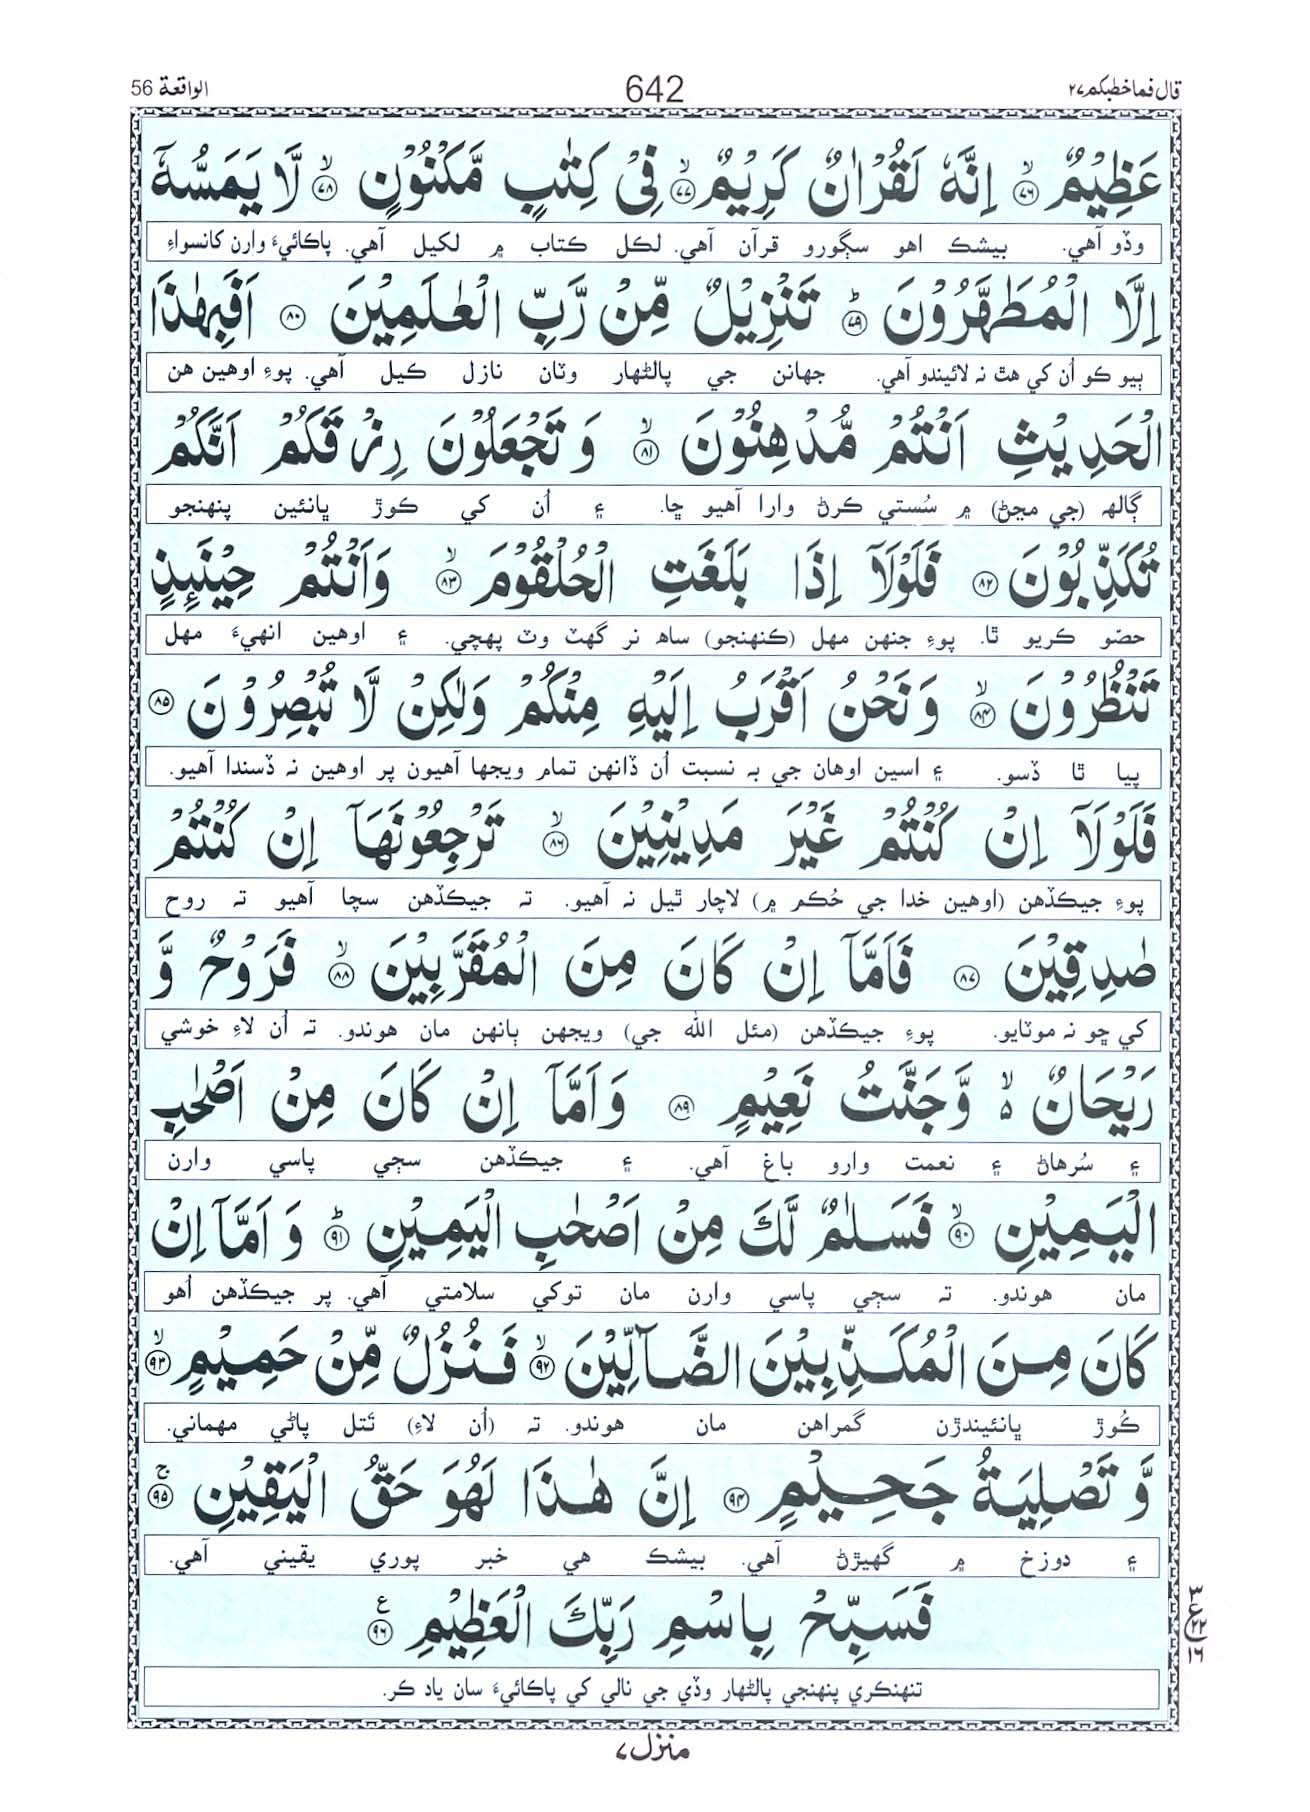 قال فما خطبكم ٢٧
642
الواقعة 56
عَظِيْمٌ ۙ﴿۷۶﴾ اِنَّهٗ لَقُرْاٰنٌ كَرِيْمٌ ۙ﴿۷۷﴾ فِيْ كِتٰبٍ مَّكْنُوْنٍ ۙ﴿۷۸﴾ لَّا يَمَسُّهٗۤ
وڏو آهي. بيشڪ اهو سڳورو قرآن آهي. لڪل ڪتاب ۾ لکيل آهي. پاڪائيءَ وارن کانسواءِ
اِلَّا الْمُطَهَّرُوْنَ ؕ﴿۷۹﴾ تَنْزِيْلٌ مِّنْ رَّبِّ الْعٰلَمِيْنَ ﴿۸۰﴾ اَفَبِهٰذَا
ٻيو ڪو اُن کي هٿ نہ لائيندو آهي. جهانن جي پالڻهار وٽان نازل ڪيل آهي. پوءِ اوهين هن
الْحَدِيْثِ اَنْتُمْ مُّدْهِنُوْنَ ۙ﴿۸۱﴾ وَ تَجْعَلُوْنَ رِزْقَكُمْ اَنَّكُمْ
ڳالھہ (جي مڃڻ) ۾ سُستي ڪرڻ وارا آهيو ڇا. ۽ اُن کي ڪوڙ ڀانئين پنهنجو
تُكَذِّبُوْنَ ﴿۸۲﴾ فَلَوْلَاۤ اِذَا بَلَغَتِ الْحُلْقُوْمَ ۙ﴿۸۳﴾ وَاَنْتُمْ حِيْنَىِٕذٍ
حصّو ڪريو ٿا. پوءِ جنهن مهل (ڪنهنجو) ساھ نر گهٽ وٽ پهچي. ۽ اوهين انهيءَ مهل
تَنْظُرُوْنَ ۙ﴿۸۴﴾ وَنَحْنُ اَقْرَبُ اِلَيْهِ مِنْكُمْ وَلٰكِنْ لَّا تُبْصِرُوْنَ ﴿۸۵﴾
پيا ٿا ڏسو. ۽ اسين اوهان جي بہ نسبت اُن ڏانهن تمام ويجها آهيون پر اوهين نہ ڏسندا آهيو.
فَلَوْلَاۤ اِنْ كُنْتُمْ غَيْرَ مَدِيْنِيْنَ ۙ﴿۸۶﴾ تَرْجِعُوْنَهَاۤ اِنْ كُنْتُمْ
پوءِ جيڪڏهن (اوهين خدا جي حُڪم ۾) لاچار ٿيل نہ آهيو. تہ جيڪڏهن سچا آهيو تہ روح
صٰدِقِيْنَ ﴿۸۷﴾ فَاَمَّاۤ اِنْ كَانَ مِنَ الْمُقَرَّبِيْنَ ۙ﴿۸۸﴾ فَرَوْحٌ وَّ
کي ڇو نہ موٽايو. پوءِ جيڪڏهن (مئل الله جي) ويجهن ٻانهن مان هوندو. تہ اُن لاءِ خوشي
رَيْحَانٌ ۙ۬ وَّجَنَّتُ نَعِيْمٍ ﴿۸۹﴾ وَاَمَّاۤ اِنْ كَانَ مِنْ اَصْحٰبِ
۽ سُرهاڻ ۽ نعمت وارو باغ آهي. ۽ جيڪڏهن سڄي پاسي وارن
الْيَمِيْنِ ۙ﴿۹۰﴾ فَسَلٰمٌ لَّكَ مِنْ اَصْحٰبِ الْيَمِيْنِ ؕ﴿۹۱﴾ وَاَمَّاۤ اِنْ
مان هوندو. تہ سڄي پاسي وارن مان توکي سلامتي آهي. پر جيڪڏهن اُهو
كَانَ مِنَ الْمُكَذِّبِيْنَ الضَّآلِّيْنَ ۙ﴿۹۲﴾ فَنُزُلٌ مِّنْ حَمِيْمٍ ۙ﴿۹۳﴾
ڪُوڙ ڀانئيندڙن گمراهن مان هوندو. تہ (اُن لاءِ) تَتل پاڻي مهماني.
وَّتَصْلِيَةُ جَحِيْمٍ ﴿۹۴﴾ اِنَّ هٰذَا لَهُوَ حَقُّ الْيَقِيْنِ ۚ﴿۹۵﴾
۽ دوزخ ۾ گهيڙڻ آهي. بيشڪ هي خبر پوري يقيني آهي.
فَسَبِّحْ بِاسْمِ رَبِّكَ الْعَظِيْمِ ﴿۹۶﴾ ع
تنهنڪري پنهنجي پالڻهار وڏي جي نالي کي پاڪائيءَ سان ياد ڪر.
۳ ع ۲۲ ۱۶
منزل ۷